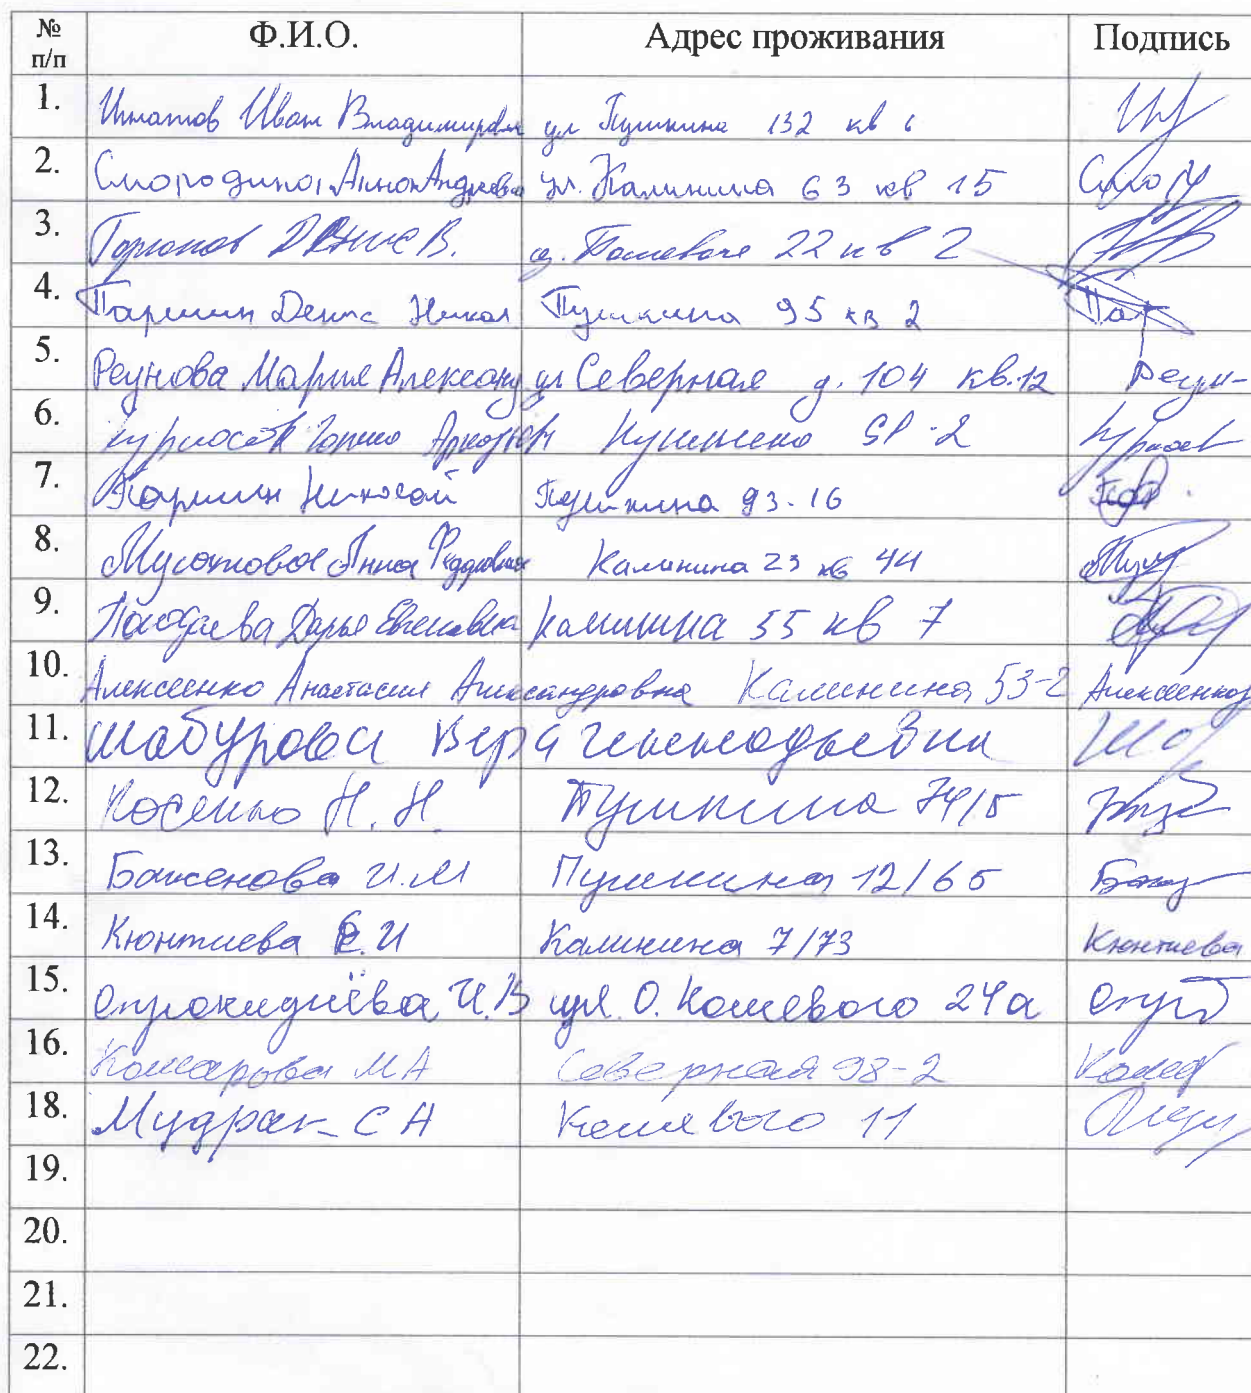 № п/п Ф.И.О. Адрес проживания Подпись
1. Игнатов Иван Владимирович ул Пушкина 132 кв 6
2. Смородина Анна Андреевна ул. Калинина 63 кв 15
3. Горюнов Денис В. Кошевого 22 кв 2
4. Паршин Денис Никол Пушкина 95 кв 2 Пар
5. Реунова Мария Александ ул Северная д. 104 кв.12 Реун-
6. Пушкина
7. Паршин Николай Пушкина 93-16 Пар
8. Мусатова Анна Федоровна Калинина 23 кв 44
9. Дарья Евгеньевна Калинина 55 кв 7
10. Алексеенко Анастасия Александровна Калинина 53-2 Алексеенко
11. Шабурова Вера Геннадьевна
12. Косенко Н. Н. Пушкина 74/5
13. Баженова И.М Пушкина 12/65 Баж
14. Кюнтиева Е.И Калинина 7/73 Кюнтиева
15. Опрокиднёва И.В ул. О. Кошевого 24а
16. Комарова МА Северная 98-2 Комар
18. Мудрак СА Кошевого 11
19.
20.
21.
22.